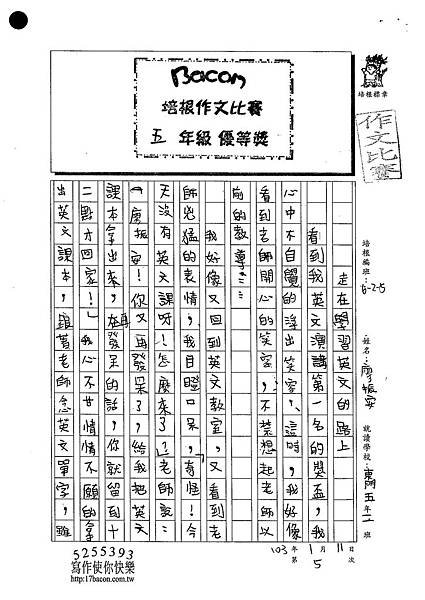 Bacon
培根作文比賽
五 年級 優等獎
培根標章
作文比賽
培根編班：
姓名：廖振安
就讀學校：東門 五年二班
走在學習英文的路上
看到我英文演講第一名的獎盃，我
心中不自覺的浮出笑容，這時，我好像
看到老師開心的笑容，不禁想起老師以
前的教導……
我好像又回到英文教室，又看到老
師兇猛的表情，我目瞪口呆，奇怪！今
天沒有英文課呀！怎麼來了？老師說：
「廖振安！你又再發呆了，給我把英文
課本拿出來，再發呆的話，你就留到十
二點才回家！」我心不甘情不願的拿
出英文課本，跟著老師念英文單字，雖
103年1月11日
第5次
5255393
寫作使你快樂
http://17bacon.com.tw